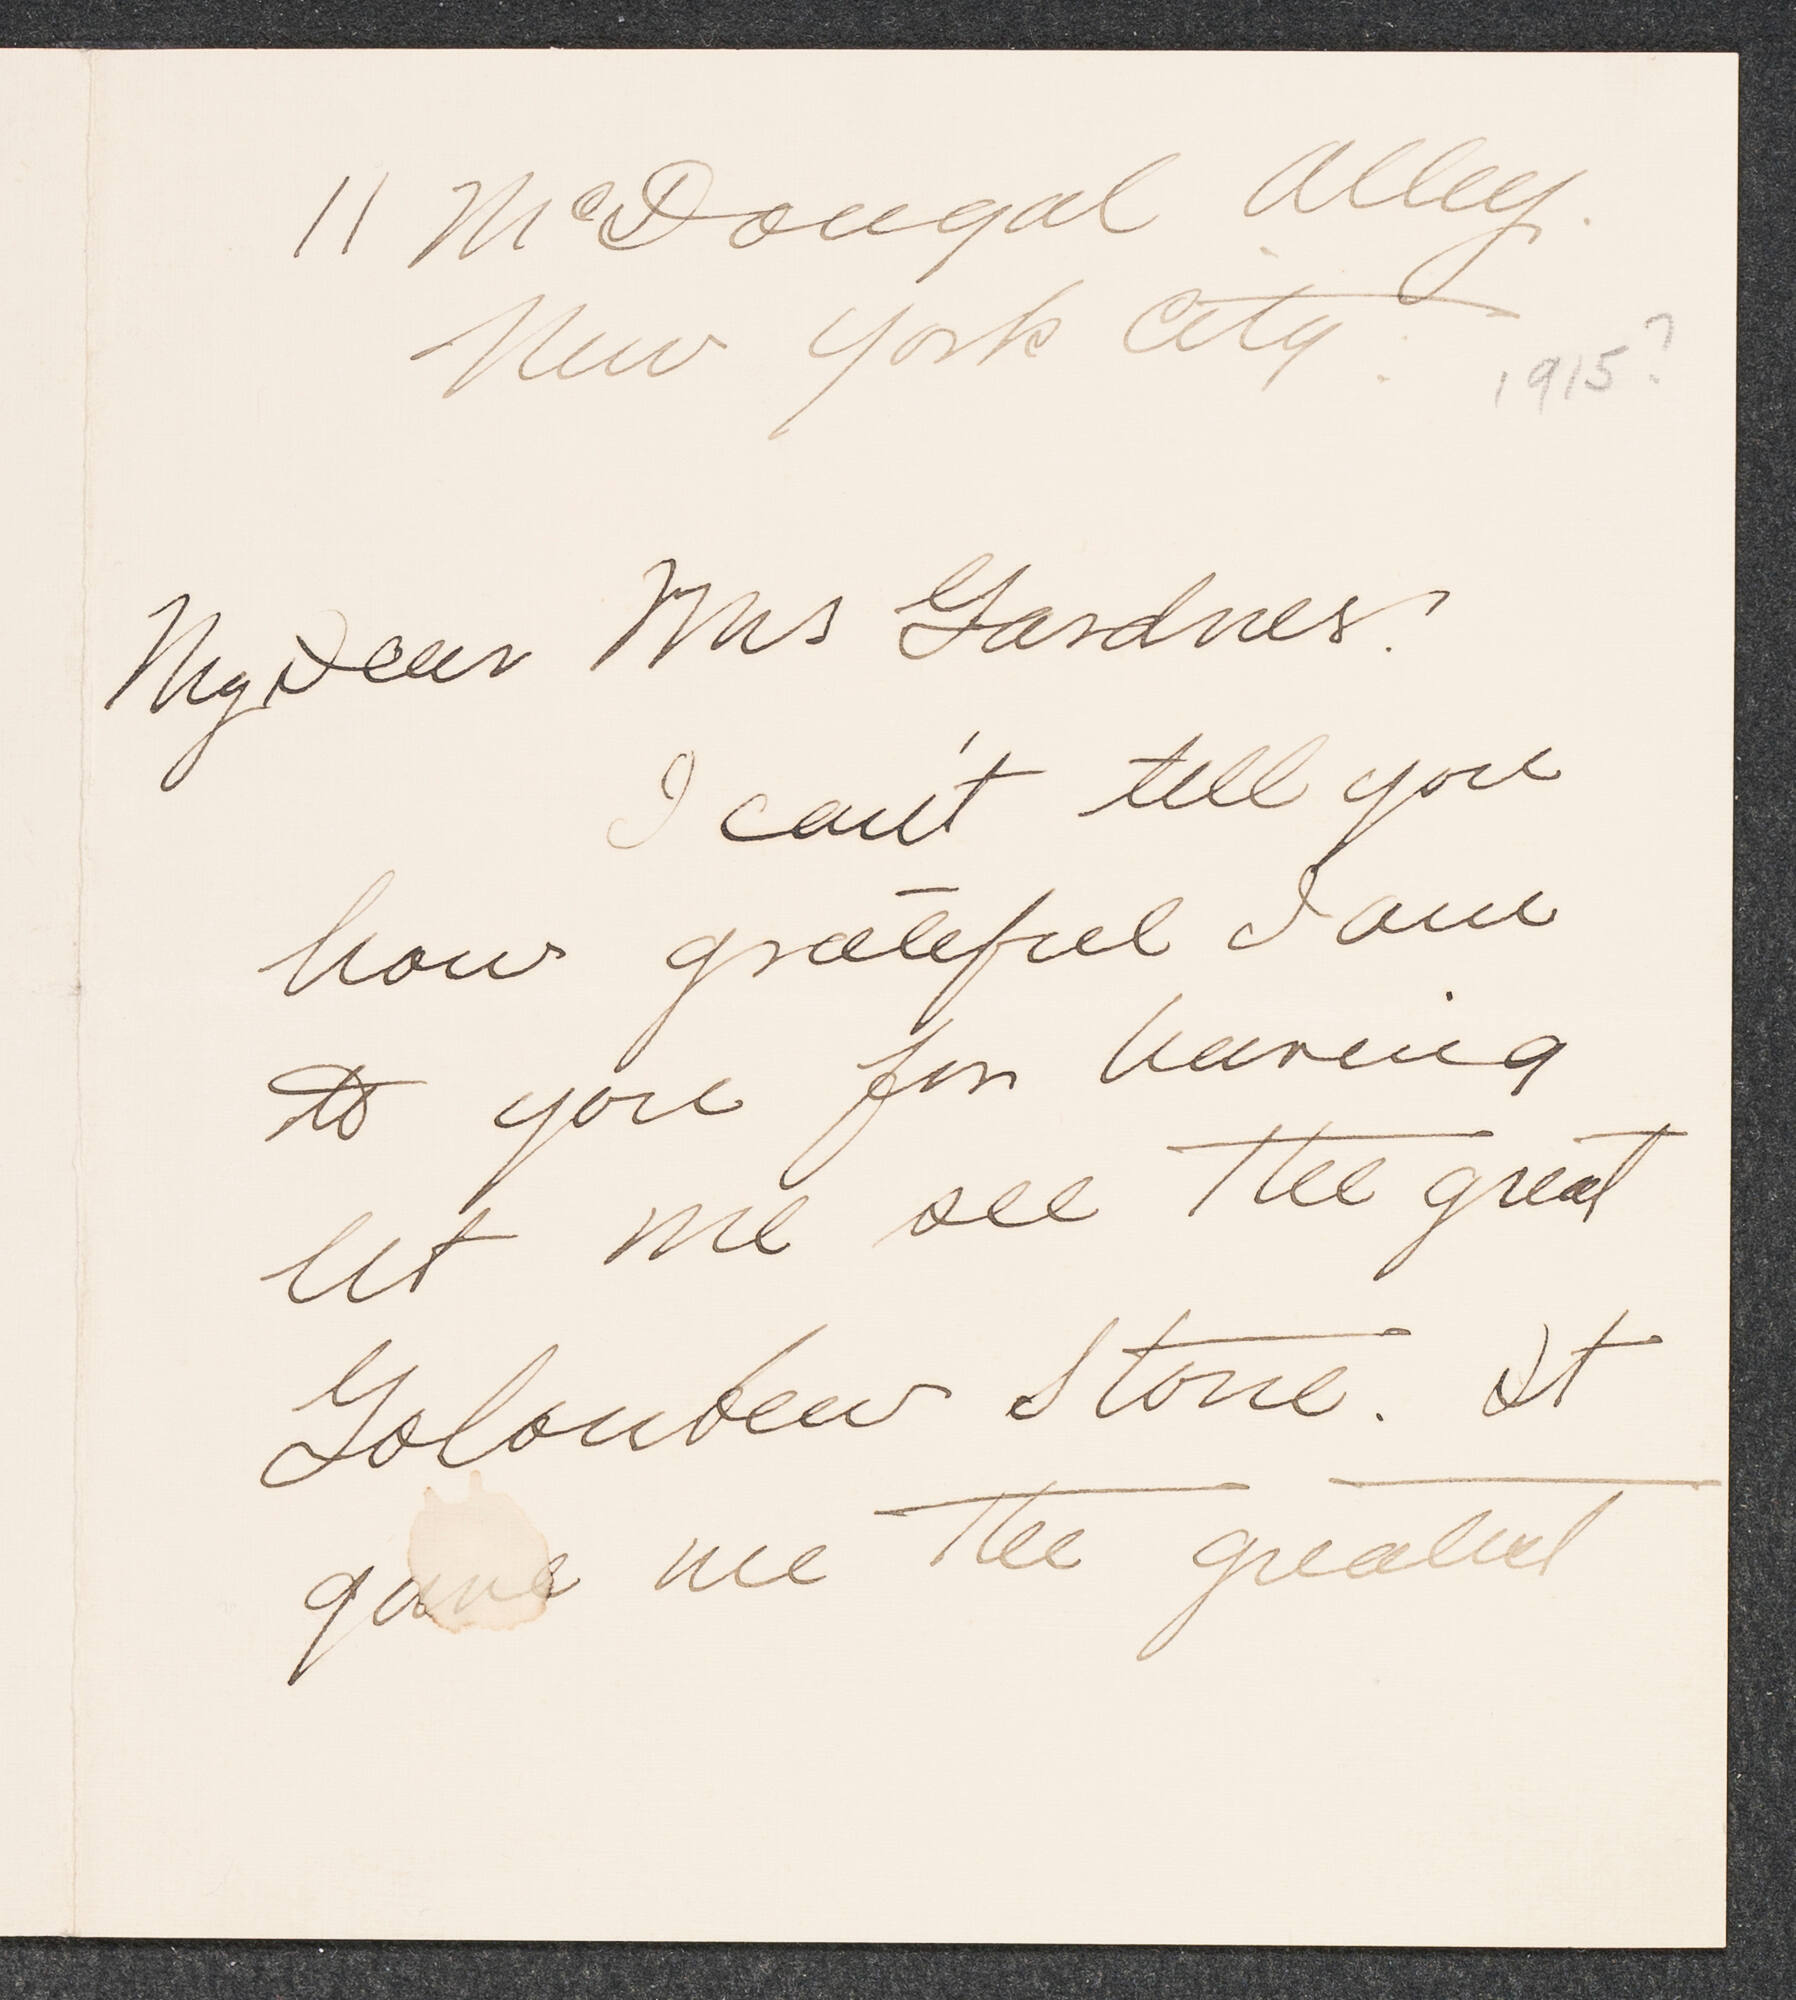 11 McDougal Alley.
New York City.
1915?
My Dear Mrs Gardner.
I can't tell you
how grateful I am
to you for having
let me see the great
Goloubew Stone. It
gave me the greatest